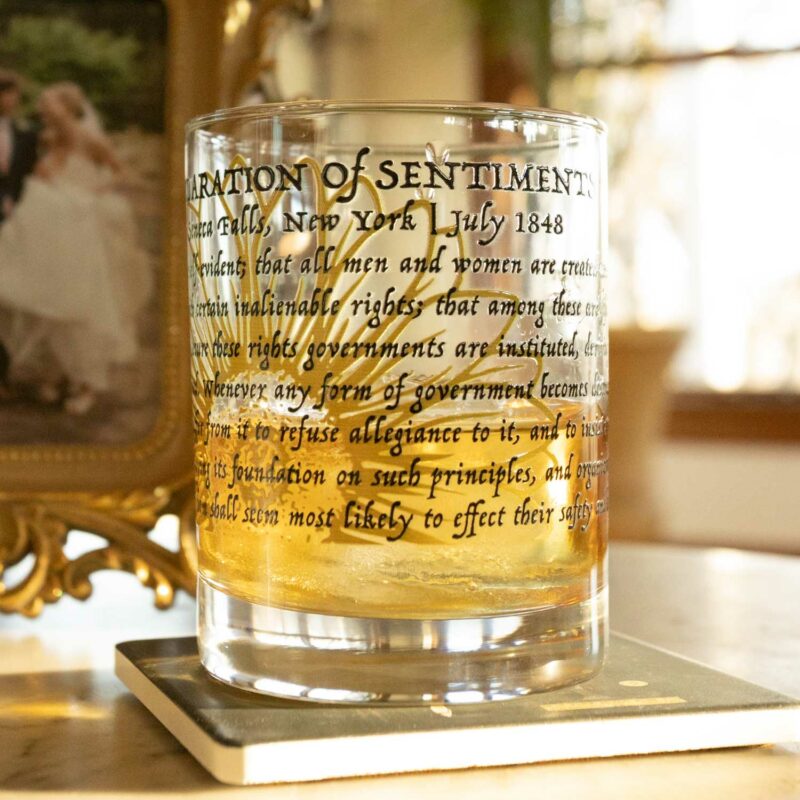 ARATION of SENTIMENTS
Seneca Falls, New York | July 1848
evident; that all men and women are create
certain inalienable rights; that among these are
ure these rights governments are instituted, de
Whenever any form of government becomes des
from it to refuse allegiance to it, and to insis
ing its foundation on such principles, and organi
shall seem most likely to effect their safety an